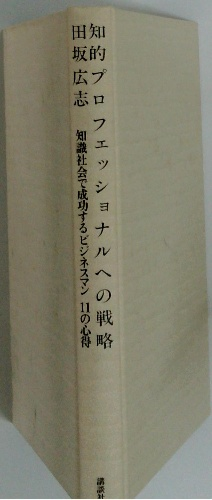 知的プロフェッショナルへの戦略
田坂広志
知識社会で成功するビジネスマン 11の心得
講談社